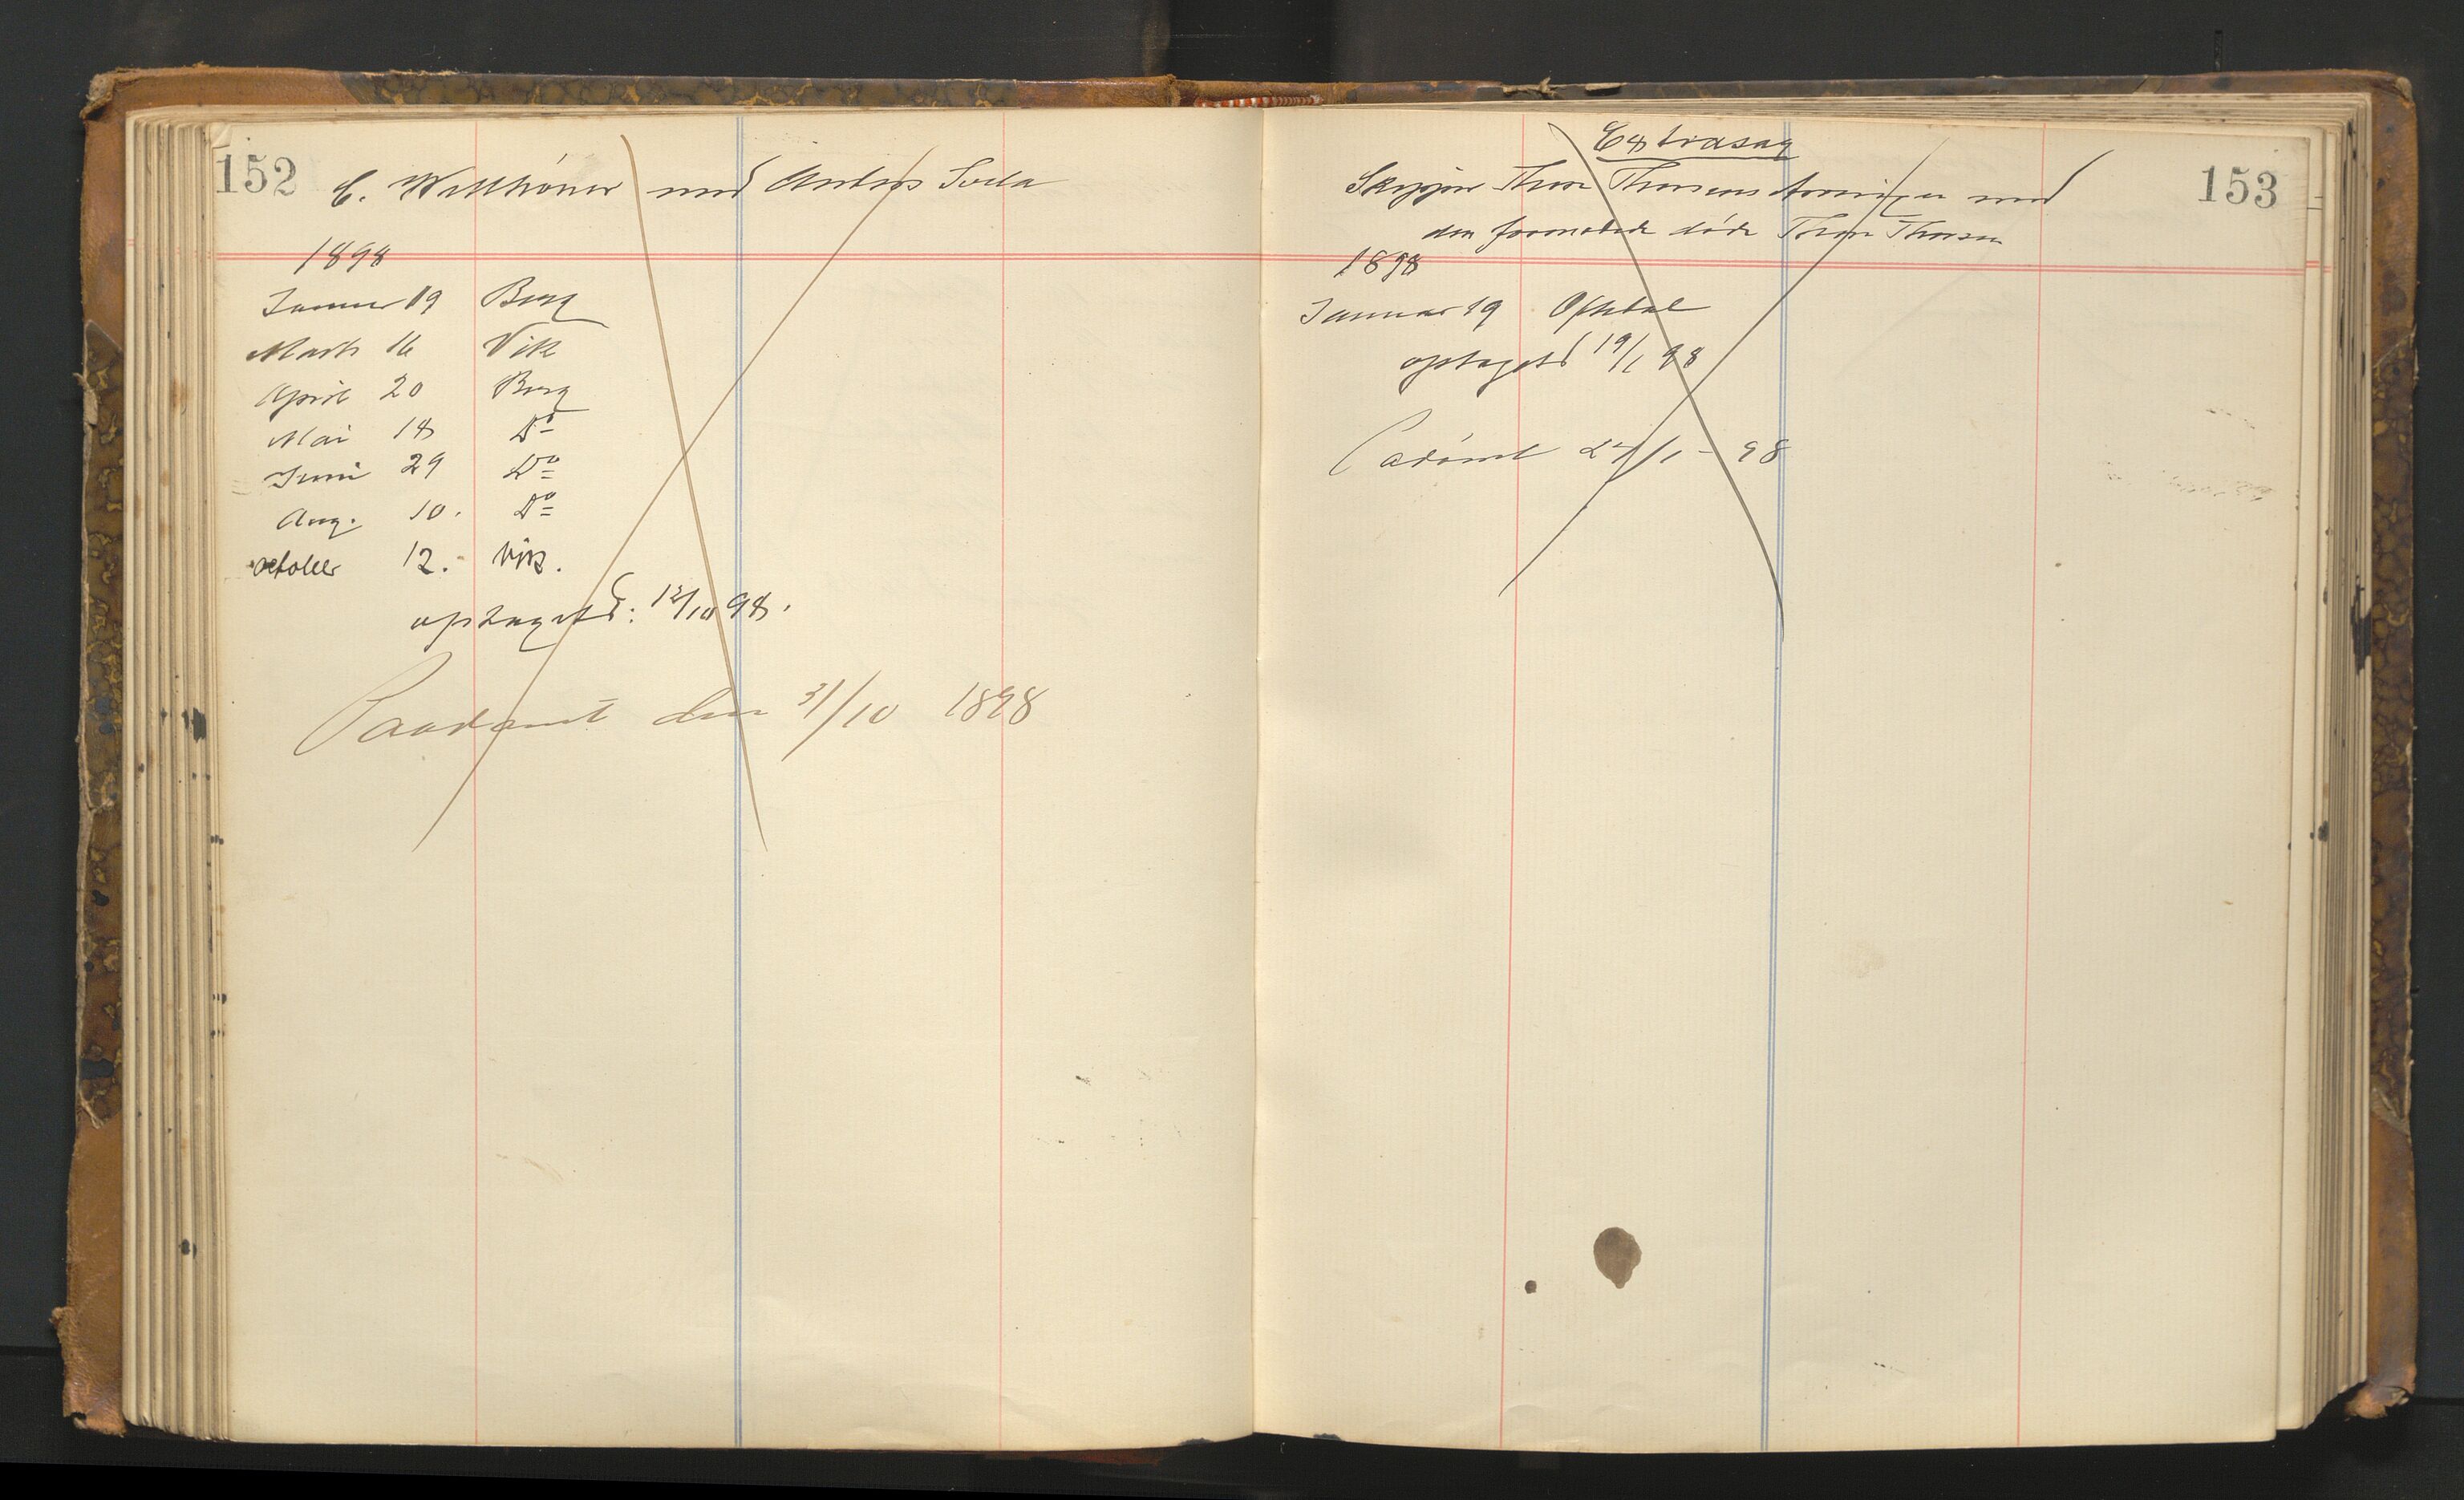 152
C. Wallthöner mod Anders SVela
1898
Januar 19 Berg
Marts 16 Vik
April 20 Berg
Mai 18 Do
Juni 29 Do
Aug. 10. Do
october 12.-
optaget d: 12/10 98.
Paadømt den 31/10 1898
153
Extrasag
Skipper Thore Thorsens Arvinger mod
den formodede døde Thore Thorsen
1898
Januar 19 Oftedal
optaget d 19/1 98
Padømt /1 - 98